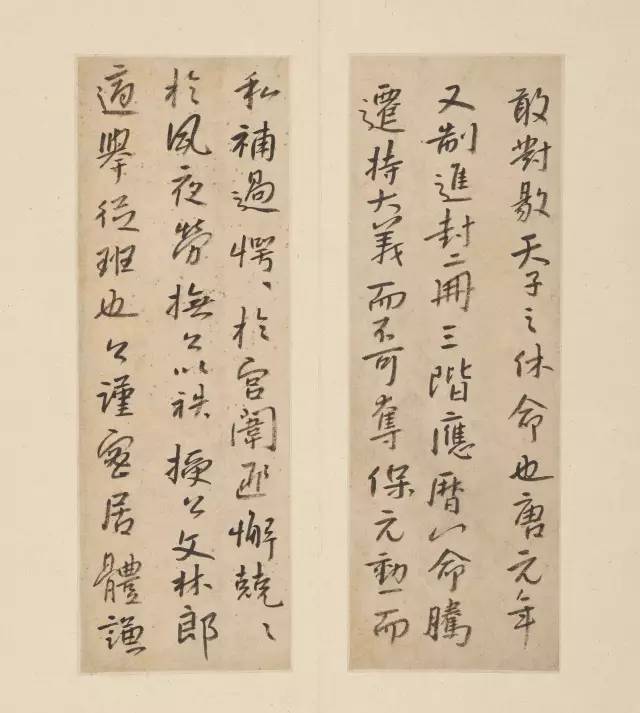 敢對敭天子之休命也唐元年
又制進封二冊三階應曆以命騰
遷持大義而不可奪保元勳而
私補過愕、於宮闈匪懈兢〻
於夙夜勞撫公以祑授公文林郎
適舉從班也公謹密居體謙